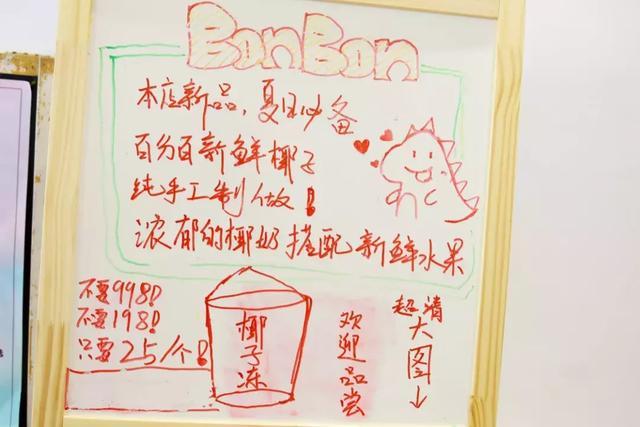 BonBon
本店新品，夏日必备
百分百新鲜椰子
纯手工制做！
浓郁的椰奶搭配新鲜水果
不要998！
不要198！
只要25/个！
椰子冻
欢迎品尝
超清
大图↓